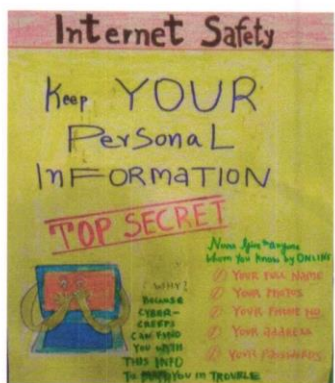 Internet Safety
Keep YOUR
Personal
InFORMATION
TOP SECRET
Never Give anyone
whom You Know by ONLINE
YOUR FULL NAME
YOUR PHOTOS
YOUR PHONE NO
YOUR ADDRESS
YOUR PASSWORDS
WHY?
BECAUSE
CYBER-
CREEPS
CAN FIND
YOU WITH
THIS INFO
To You in TROUBLE